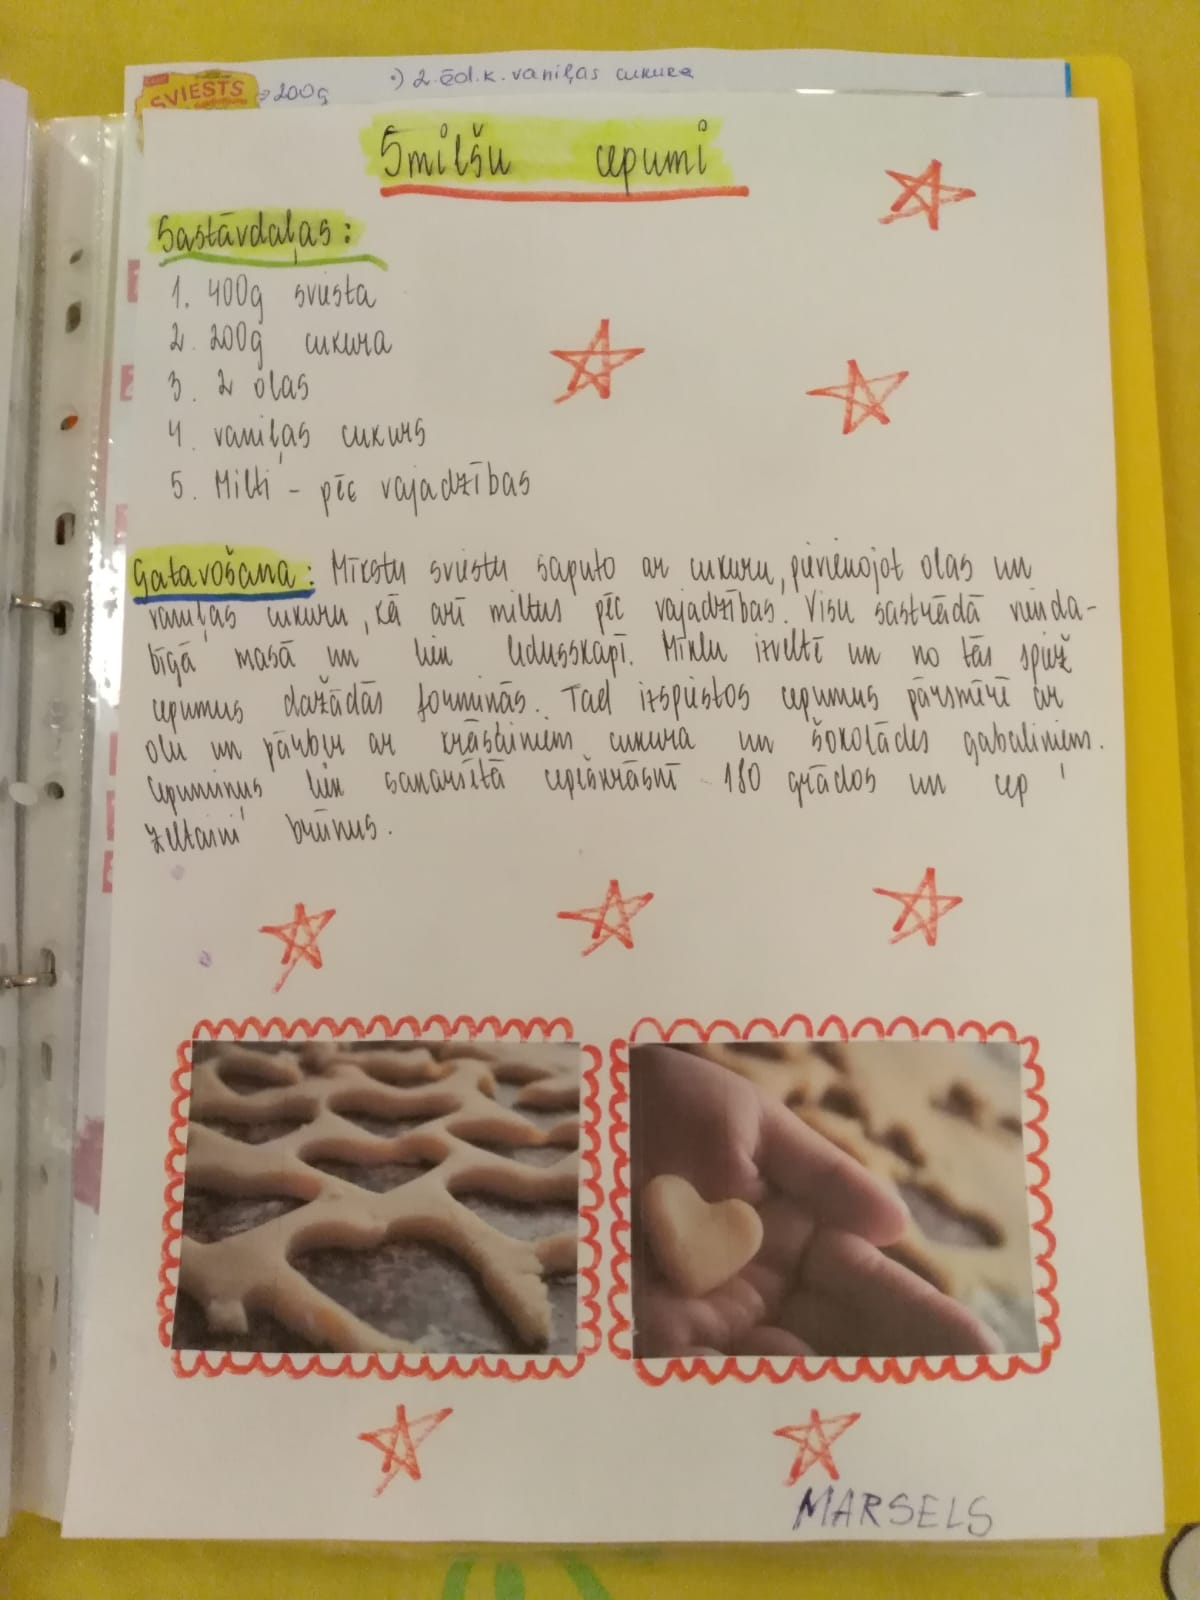 SVIESTS
200g
2.ēd.k. vaniļas cukura
Smilšu cepumi
Sastāvdaļas:
1. 400g sviesta
2. 200g cukura
3. 2 olas
4. vaniļas cukurs
5. Milti - pēc vajadzības
Gatavošana: Mīkstu sviestu saputo ar cukuru, pievienojot olas un
vaniļas cukuru, kā arī miltus pēc vajadzības. Visu sastrādā vienda-
bīgā masā un liek ledusskapī. Mīklu izveltē un no tās spiež
cepumus dažādās formiņās. Tad izspiestos cepumus pārsmērē ar
olu un pārber ar krāsainiem cukura un šokolādes gabaliņiem.
Cepumiņus liek sakarsētā cepeškrāsnī 180 grādos un cep
zeltaini brūnus.
MARSELS